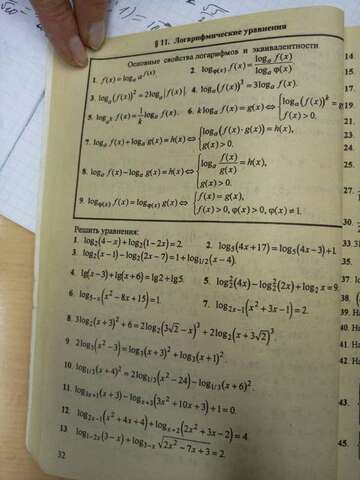 § 11. Логарифмические уравнения
Основные свойства логарифмов и эквивалентности
1. f(x) = logₐ a^{f(x)}. 2. log_{φ(x)} f(x) = logₐ f(x) / logₐ φ(x)
3. logₐ(f(x))² = 2logₐ|f(x)| 4. logₐ(f(x))³ = 3logₐ f(x).
5. log_{aᵏ} f(x) = 1/k logₐ f(x). 6. k logₐ f(x) = g(x) ⇔ { logₐ(f(x))ᵏ = g(x), f(x) > 0.
7. logₐ f(x) + logₐ g(x) = h(x) ⇔ { logₐ(f(x) · g(x)) = h(x), g(x) > 0.
8. logₐ f(x) − logₐ g(x) = h(x) ⇔ { logₐ f(x)/g(x) = h(x), g(x) > 0.
9. log_{φ(x)} f(x) = log_{φ(x)} g(x) ⇔ { f(x) = g(x), f(x) > 0, φ(x) > 0, φ(x) ≠ 1.
Решить уравнения:
1. log₂(4 − x) + log₂(1 − 2x) = 2. 2. log₅(4x + 17) = log₅(4x − 3) + 1
3. log₂(x − 1) − log₂(2x − 7) = 1 + log_{1/2}(x − 4).
4. lg(x − 3) + lg(x + 6) = lg2 + lg5. 5. log₂²(4x) − log₂²(2x) + log₂ x = 9.
6. log_{5−x}(x² − 8x + 15) = 1. 7. log_{2x−1}(x² + 3x − 1) = 2.
8. 3log₂(x + 3)² + 6 = 2log₂(3√2 − x)³ + 2log₂(x + 3√2)³.
9. 2log₃(x² − 3) = log₃(x + 3)² + log₃(x + 1)².
10. log_{1/3}(x + 4)² = 2log_{1/3}(x² − 24) − log_{1/3}(x + 6)².
11. log_{3x+1}(x + 3) − log_{x+3}(3x² + 10x + 3) + 1 = 0.
12. log_{2x−1}(x² + 4x + 4) + log_{x+2}(2x² + 3x − 2) = 4.
13 log_{1−2x}(3 − x) + log_{3−x} √(2x² − 7x + 3) = 2.
32
14.
15.
16.
17.
18.
19.
30.
33.
34.
35.
36.
37.
38.
39.
40.
41.
42.
43.
45.